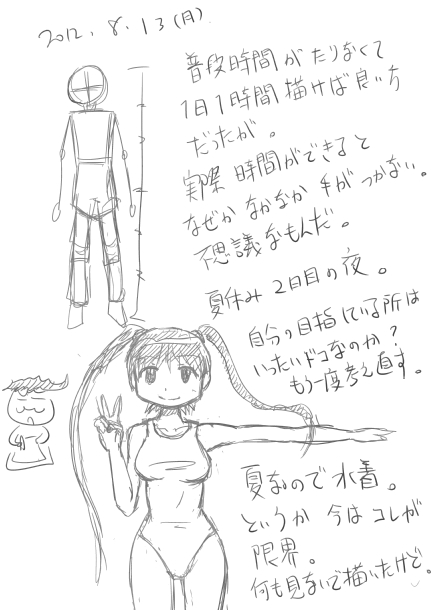 2012. 8. 13(月)
普段時間がたりなくて
1日1時間描けば良い方
だったが。
実際時間ができると
なぜかなかなか手がつかない。
不思議なもんだ。
夏休み2日目の夜。
自分の目指している所は
いったいドコなのか?
もう一度考え直す。
夏なので水着。
というか今はコレが
限界。
何も見ないで描いたけど。